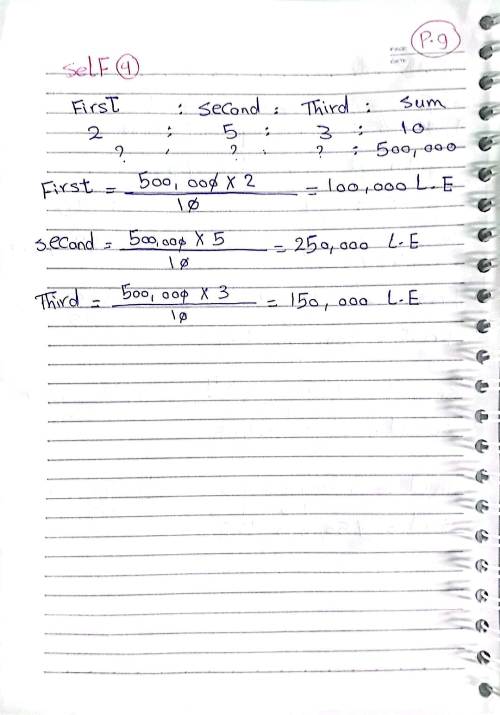 P.9
PAGE
DATE
SELF 4
First : Second : Third : Sum
2 : 5 : 3 : 10
? : ? : ? : 500,000
First = 500,000 X 2 / 10 = 100,000 L.E
Second = 500,000 X 5 / 10 = 250,000 L.E
Third = 500,000 X 3 / 10 = 150,000 L.E